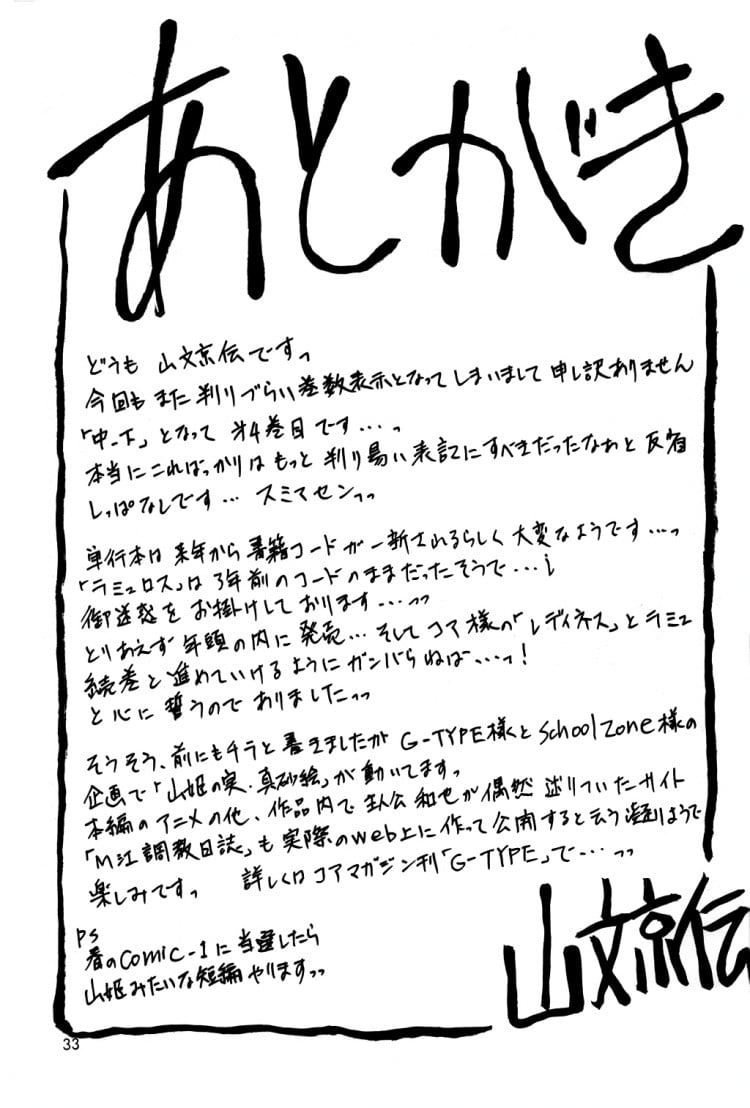 あとがき
どうも 山文京伝ですっ
今回もまた判りづらい巻数表示となってしまいまして申し訳ありません
「中-下」となって 㐧4巻目です…っ
本当にこればっかりはもっと判り易い表記にすべきだったなぁと反省
しっぱなしです… スミマセンっっ
単行本は来年から書籍コードが一新されるらしく大変なようです…っ
「ラミュロス」は3年前のコードのままだったそうで…i
御迷惑をお掛けしております…っっ
とりあえず年頭の内に発売…そしてコア様の「レディネス」とラミュ
続巻と進めていけるようにガンバらねば…っ!
と心に誓うのでありましたっっ
そうそう、前にもチラと書きましたが G-TYPE様くとSchoolZone様の
企画で「山姫の実・真砂絵」が動いてますっ
本編のアニメの他、作品内で主人公和也が偶然辿りついたサイト
「M江調教日誌」も実際のweb上に作って公開すると云う凝りようで
楽しみですっ 詳しくはコアマガジン刊「G-TYPE」で…っっ
PS
春のComic-1に当選したら
山姫みたいな短編やりますっっ
山文京伝
33